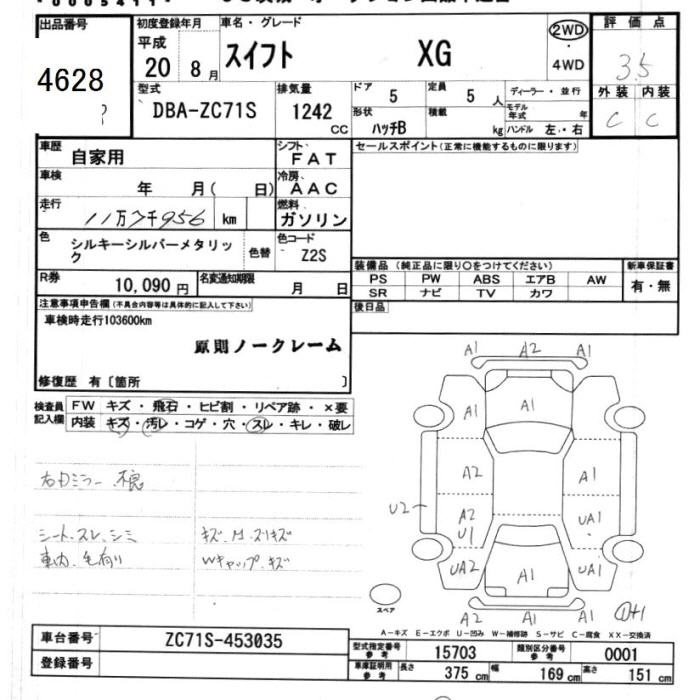 出品番号 初度登録年月 車名・グレード 2WD 評価点
4628 平成 20 8月 スイフト XG 4WD 3.5
型式 排気量 ドア 定員 ディーラー・並行 外装 内装
DBA-ZC71S 1242 CC 5 5 人 モデル年式 年 C C
形状 ハッチB 積載 kg ハンドル 左・右
車歴 自家用 シフト FAT セールスポイント(正常に機能するものに限ります)
車検 年 月( 日) 冷房 AAC
走行 11万7千956 km 燃料 ガソリン
色 シルキーシルバーメタリック 色替 色コード Z2S
装備品(純正品に限り○をつけてください) 新車保証書
R券 10,090円 名変通知期限 月 日 PS PW ABS エアB AW 有・無
SR ナビ TV カワ
注意事項申告欄(不具合内容等は具体的に記入して下さい) 後日品
車検時走行103600km
原則ノークレーム
修復歴 有〔箇所 〕
検査員記入欄 FW キズ・飛石・ヒビ割・リペア跡・×要
内装 キズ・汚レ・コゲ・穴・スレ・キレ・破レ
A1 A2 A1
A1 A1
右ドミラー不良 A2 A1
U2 A2 U1 UA1
シート.スレ.シミ キズ.M.スリキズ
車内.毛有り Wキャップ.キズ
UA2 A1 UA2
スペア A2 A1 A1
A-キズ E-エクボ U-凹み W-補修跡 S-サビ C-腐食 XX-交換済
車台番号 ZC71S-453035 型式指定番号 参考 15703 類別区分番号 参考 0001
登録番号 車庫証明用 参考 長さ 375 cm 幅 169 cm 高さ 151 cm